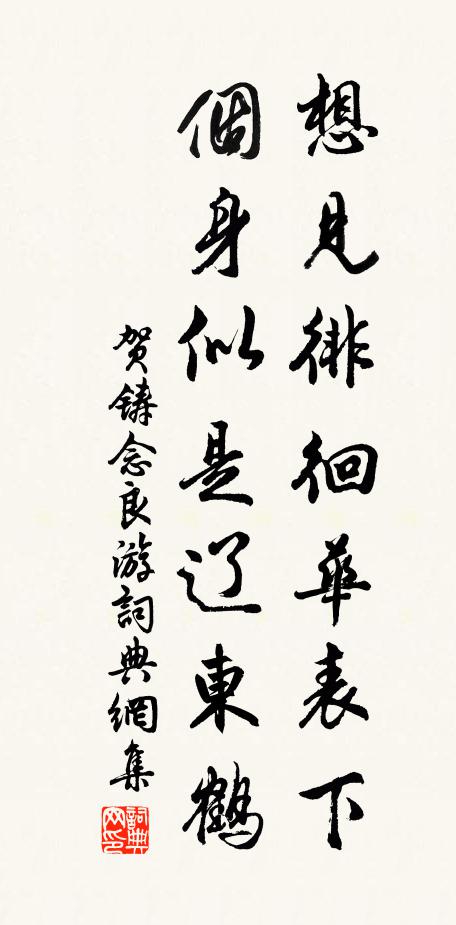 想見徘徊華表下
個身似是辽東鶴
贺鑄念良游詞典網集
詞典网印